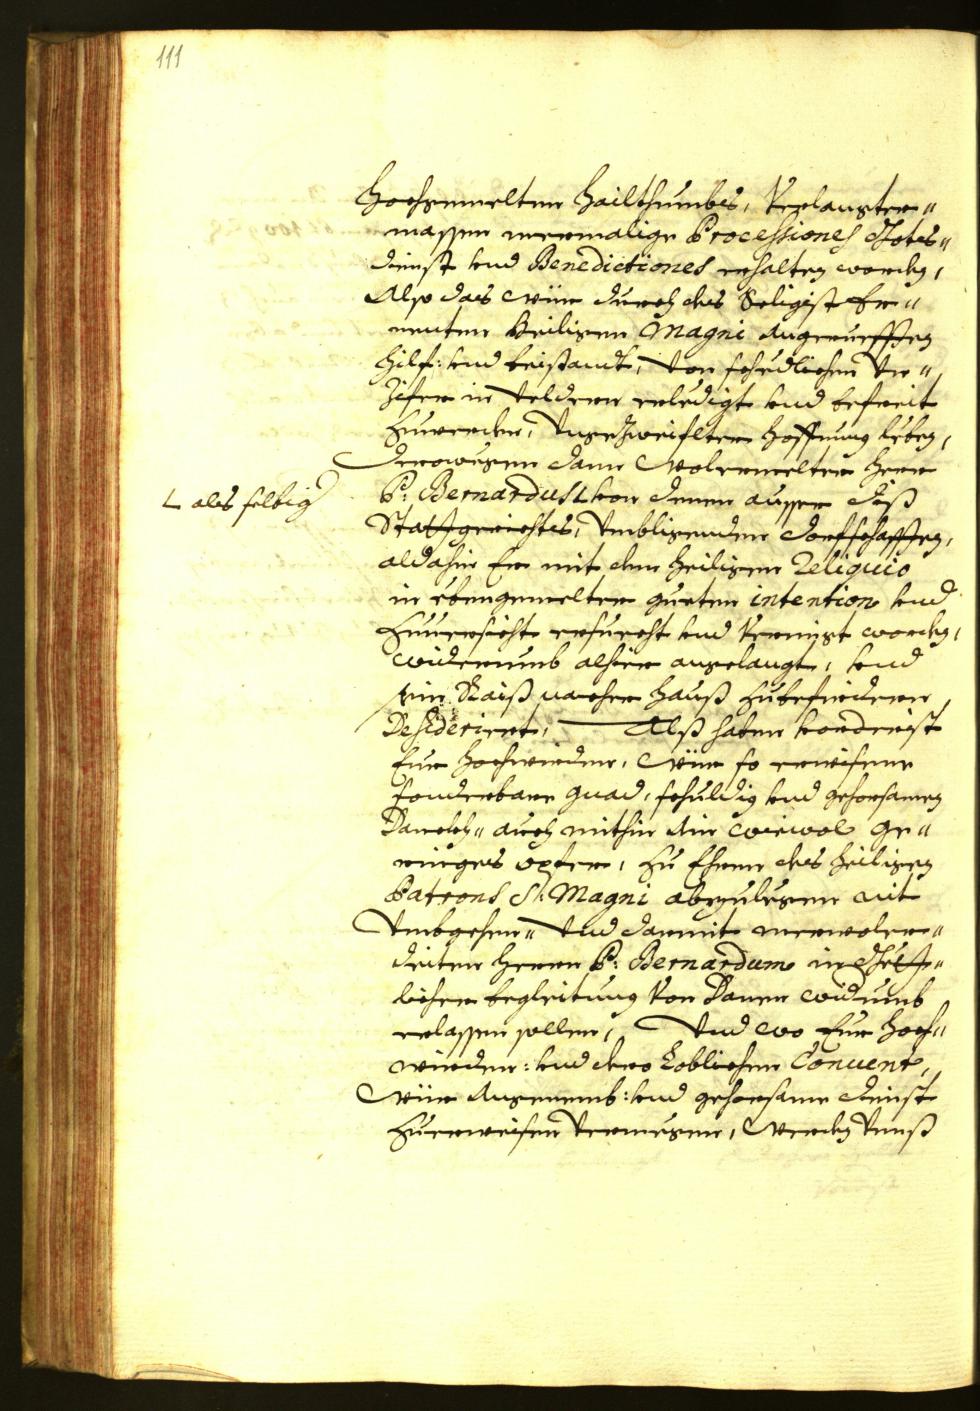 111
Hochgemelten Hailthumbs, Verlauster„
massen mermalige Processiones Gotes„
dienst und Benedictiones gehalten worden,
Also das Wür durch des Seligist Er„
nenten Heiligen Magni Angerueffen
Hilf: und beistandt, von schedlichen Un„
Zifer in Veldern erledigt und befreit
Zuwerden, Unzweifleter Hoffnung leben,
Derowegen dann Wolermelter Herr
P: Bernardus L von denen ausser diß
L als selbig
Stattgerichts, Umbligenden dorfschafften,
aldahin Er mit dem Heiligen Reliquio
in ebengemelter gueten intention und
Zuuersicht ersuecht und Vermigt worden,
Widerumb alhier angelangt, und
sein Raiß nacher Hauß zubefürdern
Desideriert, Alß haben vorderist
Eur Hochwürden, Wür so erwisene
sonderbare Gnad, schuldig und gehorsamen
Danckh„ auch mithin Ain wiewol ge„
ringes opfer, zu Ehren des Heiligen
Patrons St: Magni abzulegen nit
Umbgehen„ Und darmit merwoler„
deiten Herrn P: Bernardum in Gött„
licher begleitung Von Danen widrumb
erlassen sollen, Und wo Eur Hoch„
würden: und dero Loblichen Conuent,
Wür Angenemb: und gehorsame dienst
Zuerweisen Vermegen, Werden Unnß